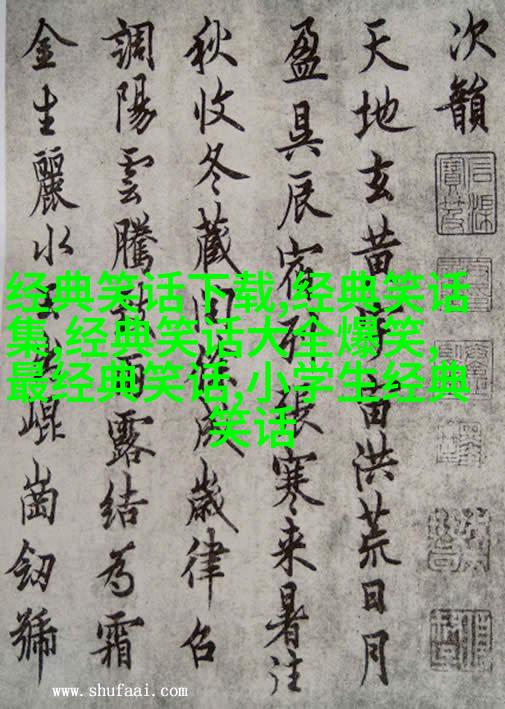 次韻
天地玄黄洪荒日月
盈昃辰宿列張寒来暑往
秋收冬藏成歲律召
調陽雲騰雨露結為霜
金生麗水崐崗劒號
经典笑话下载,经典笑话
集,经典笑话大全爆笑,
最经典笑话,小学生经典
笑话
www.shufaai.com